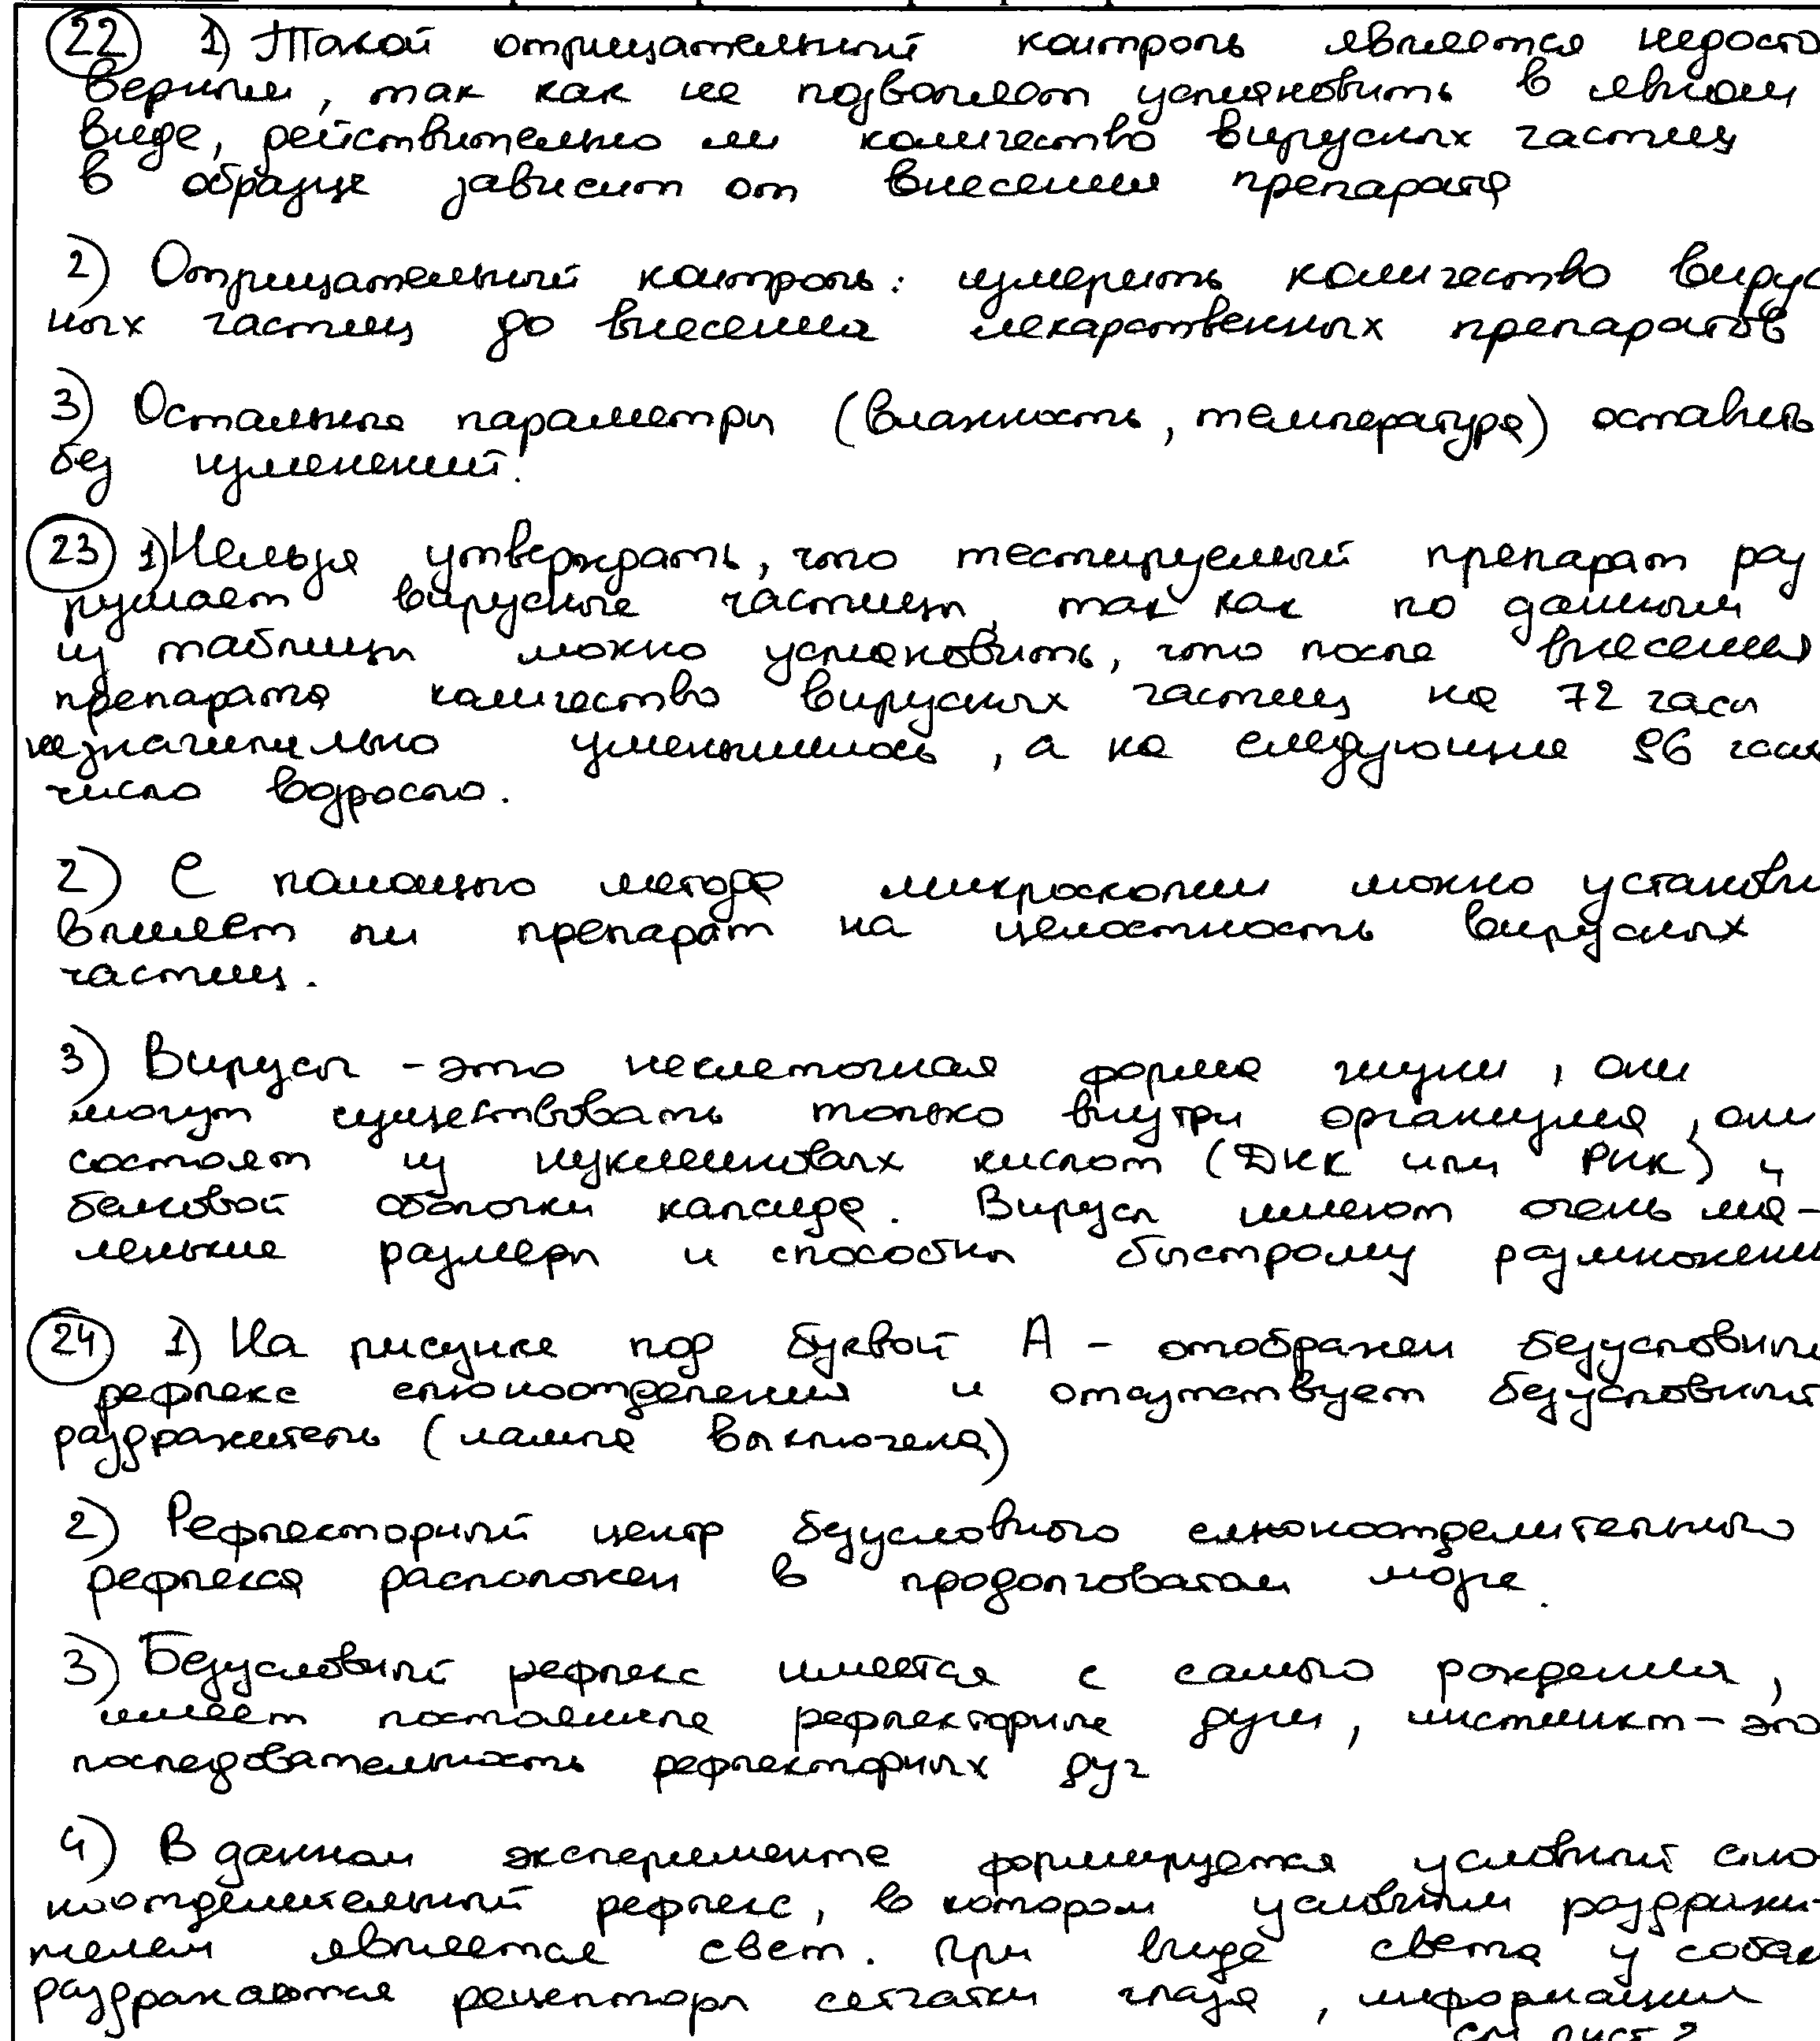 22 1) Такой отрицательный контроль является недосто
верным, так как не позволяет установить в явном
виде, действительно ли количество вирусных частиц
в образце зависит от внесения препарата
2) Отрицательный контроль: измерить количество вирус
ных частиц до внесения лекарственных препаратов
3) Остальные параметры (влажность, температура) оставить
без изменений.
23 1) Нельзя утверждать, что тестируемый препарат раз
рушает вирусные частицы, так как по данным
из таблицы можно установить, что после внесения
препарата количество вирусных частиц на 72 часы
незначительно уменьшилось, а на следующие 96 часы
число возросло.
2) С помощью метода микроскопии можно установи
влияет ли препарат на целостность вирусных
частиц.
3) Вирусы - это неклеточная форма жизни, они
могут существовать только внутри организма, они
состоят из нуклеиновых кислот (ДНК или РНК) и
белковой оболочки капсида. Вирусы имеют очень ма-
ленькие размеры и способны быстрому размножени
24 1) На рисунке под буквой А - отображен безусловны
рефлекс слюноотделения и отсутствует безусловный
раздражитель (лампа выключена)
2) Рефлекторный центр безусловного слюноотделительного
рефлекса расположен в продолговатом мозге.
3) Безусловный рефлекс имеется с самого рождения,
имеет постоянные рефлекторные дуги, инстинкт - это
последовательность рефлекторных дуг
4) В данном эксперименте формируется условный слю
ноотделительный рефлекс, в котором условным раздражи-
телем является свет. При виде света у собак
раздражаются рецепторы сетчатки глаза, информация
см лист 2